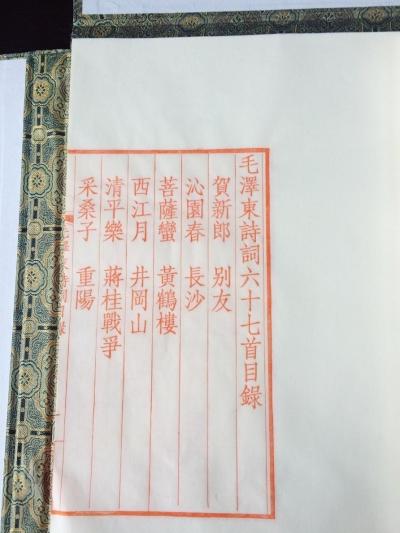 毛澤東詩詞六十七首目錄
賀新郎 别友
沁園春 長沙
菩薩蠻 黃鶴樓
西江月 井岡山
清平樂 蔣桂戰爭
采桑子 重陽